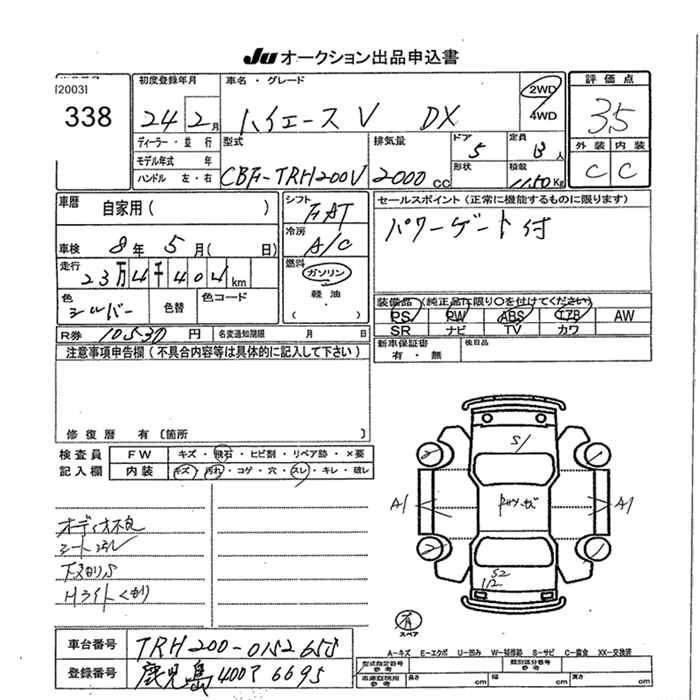 Ju オークション出品申込書
[2003]
338
初度登録年月
24年2月
車名・グレード
ハイエース V DX
2WD
4WD
評価点
3.5
外装 内装
C C
ディーラー・並行
モデル年式 年
ハンドル 左・右
型式
CBF-TRH200V
排気量
2000 cc
ドア
5
形状
定員
人
積載
1150 Kg
車歴 自家用( )
車検 8年5月( 日)
走行
23万4千404 km
色
シルバー
色替
色コード
シフト
FAT
冷房
A/C
燃料
ガソリン
軽油
セールスポイント(正常に機能するものに限ります)
パワーゲート付
装備品(純正品に限り○を付けてください)
PS PW ABS エアB AW
SR ナビ TV カワ
新車保証書
有・無
後日品
R券 10530 円
名変通知期限 月 日
注意事項申告欄(不具合内容等は具体的に記入して下さい)
修復歴 有〔箇所 〕
検査員記入欄
FW キズ・飛石・ヒビ割・リペア跡・×要
内装 キズ・汚れ・コゲ・穴・スレ・キレ・破レ
オーディオ不良
Hライトくもり
S1
A1
A1
S2
スペア
有
A-キズ E-エクボ U-凹み W-補修跡 S-サビ C-腐食 XX-交換済
車台番号 TRH200-0152655
登録番号 鹿児島 400 6695
型式指定番号
参考
類別区分番号
参考
車庫証明用
参考
長さ cm 幅 cm 高さ cm